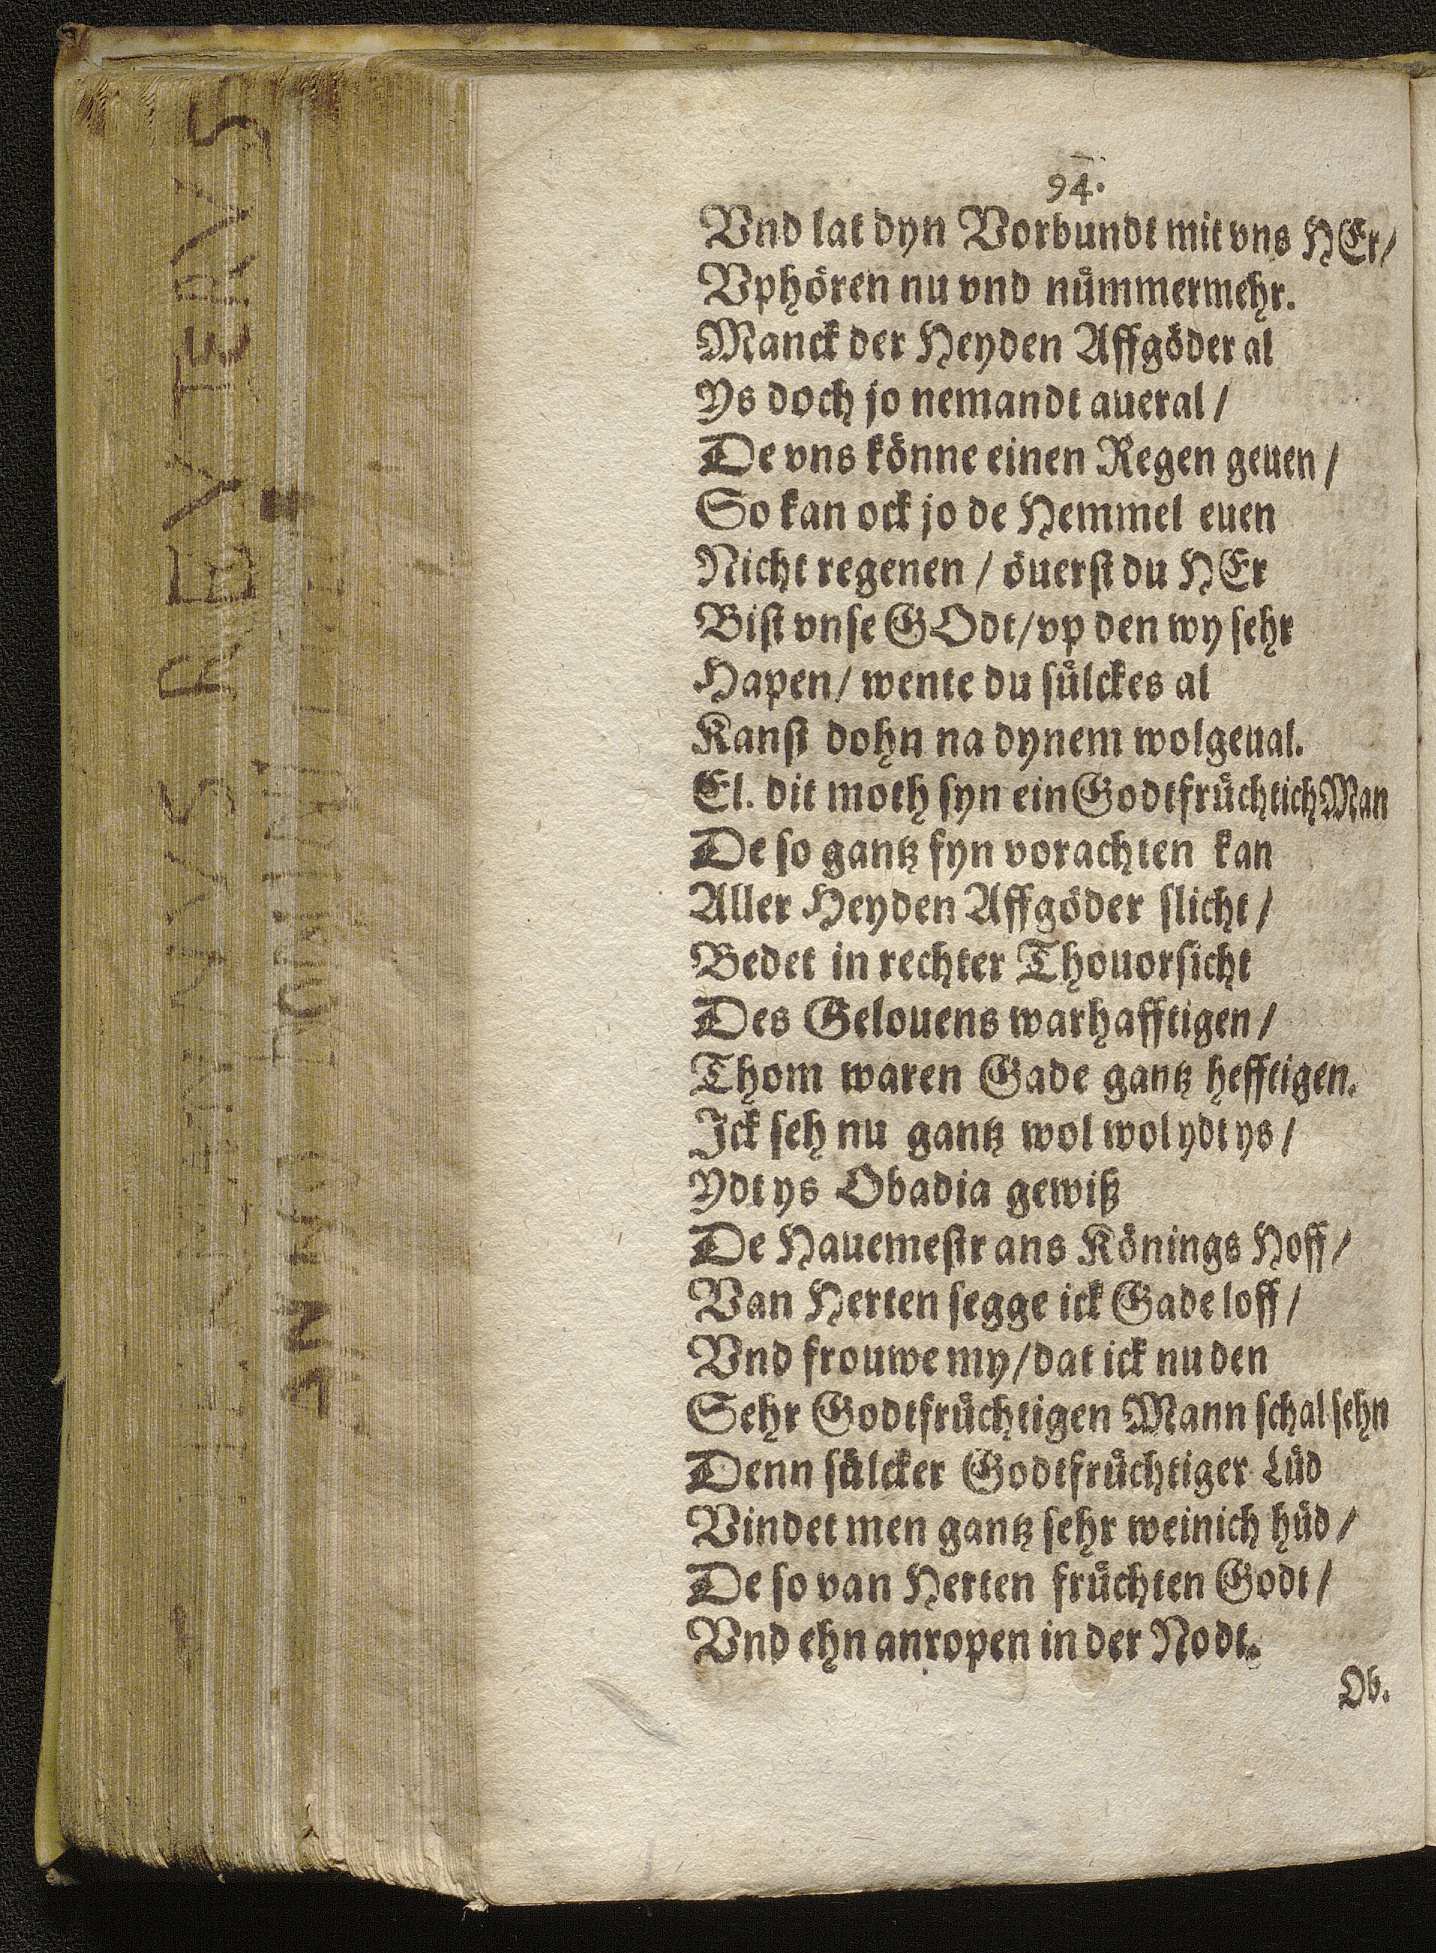 94.
Vnd lat dyn Vorbundt mit vns HEr/
Vphören nu vnd nuͤmmermehr.
Manck der Heyden Affgöder al
Ys doch jo nemandt aueral /
De vns könne einen Regen geuen /
So kan ock jo de Hemmel euen
Nicht regenen / öuerst du HEr
Bist vnse GOdt/vp den wy sehr
Hapen/ wente du suͤlckes al
Kanst dohn na dynem wolgeual.
El. dit moth syn ein Godtfruͤchtich Man
De so gantz fyn vorachten kan
Aller Heyden Affgöder slicht /
Bedet in rechter Thouorsicht
Des Gelouens warhafftigen /
Thom waren Gade gantz hefftigen.
Ick seh nu gantz wol wol ydt ys /
Ydt ys Obadia gewiß
De Hauemestr ans Könings Hoff /
Van Herten segge ick Gade loff /
Vnd frouwe my/dat ick nu den
Sehr Godtfruͤchtigen Mann schal sehn
Denn suͤlcker Godtfruͤchtiger Luͤd
Vindet men gantz sehr weinich huͤd /
De so van Herten fruͤchten Godt /
Vnd ehn anropen in der Nodt.
Ob.
REVTERVS